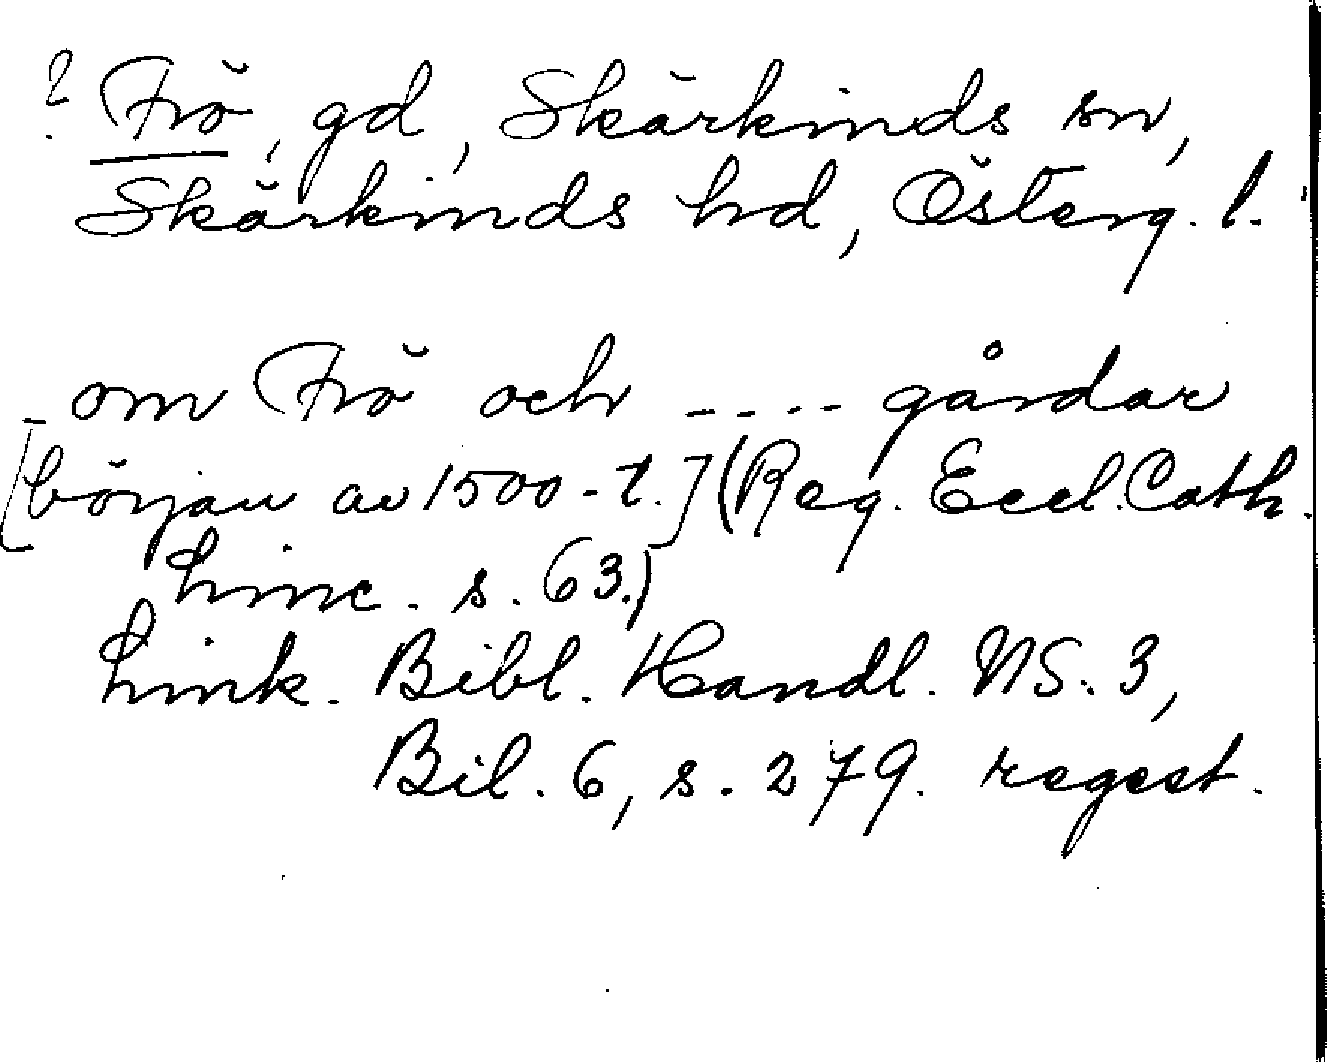 ? Frö, gd, Skärkinds sn,
Skärkinds hd, Österg. l.
- om Frö och ---- gårdar
[början av 1500-t.] (Reg. Eccl. Cath.
Linc. s. 63.)
Link. Bibl. Handl. NS. 3,
Bil. 6, s. 279. regest.